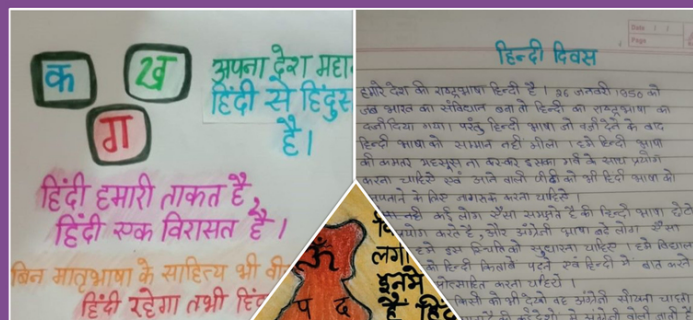 क
ख
ग
अपना देश महा
हिंदी से हिंदुस
है।
हिंदी हमारी ताकत है,
हिंदी एक विरासत है।
बिन मातृभाषा के साहित्य भी वी
हिंदी रहेगा तभी हिंद
ॐ
प द
लगा
इनमे
है हिंद
Date
Page
हिन्दी दिवस
हमारे देश की राष्ट्रभाषा हिन्दी है। 26 जनवरी 1950 को
जब भारत का संविधान बना तो हिन्दी का राष्ट्रभाषा का
दर्जा दिया गया। परंतु हिन्दी भाषा को दर्जा देने के बाद
हिन्दी भाषा को सम्मान नही मीला। हमे हिन्दी भाषा
को कमतर महसूस ना करकर इसका गर्व के साथ प्रयोग
करना चाहिऐ एवं आने वाली पीढी को भी हिंदी भाषा को
अपनाने के लिए जागरूक करना चाहिऐ।
कई लोग ऐसा समझते है की हिन्दी भाषा छोटे
योग करते है, और अंग्रेजी भाषा बडे लोग ऐसा
हमे इस स्थिति को सुधारना चाहिऐ। हमे विद्यालय
को हिन्दी किताबे पढने एवं हिन्दी मे बात करने
प्रोत्साहित करना चाहिये।
किसी को भी देखो वह अंग्रेजी सीखना चाहता